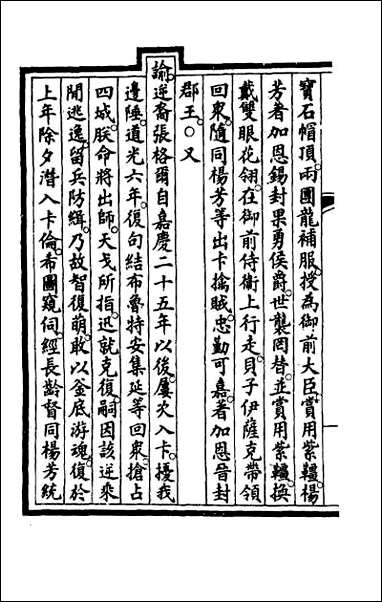 寶石帽頂。兩團龍補服。授為御前大臣賞用紫韁。楊
芳著加恩錫封果勇侯爵。世襲罔替。並賞用紫韁。換
戴雙眼花翎。在御前侍衛上行走。貝子伊薩克帶領
回衆。隨同楊芳等出卡擒賊。忠勤可嘉。著加恩晉封
郡王。○又
諭。逆裔張格爾自嘉慶二十五年以後。屢次入卡。擾我
邊陲。道光六年。復句結布魯特安集延等回衆。搶占
四城。朕命將出師。天戈所指。迅就克復。嗣因該逆乘
閒逃逸。留兵防緝。乃故智復萌。敢以釜底游魂。復於
上年除夕潛入卡倫。希圖窺伺。經長齡督同楊芳統